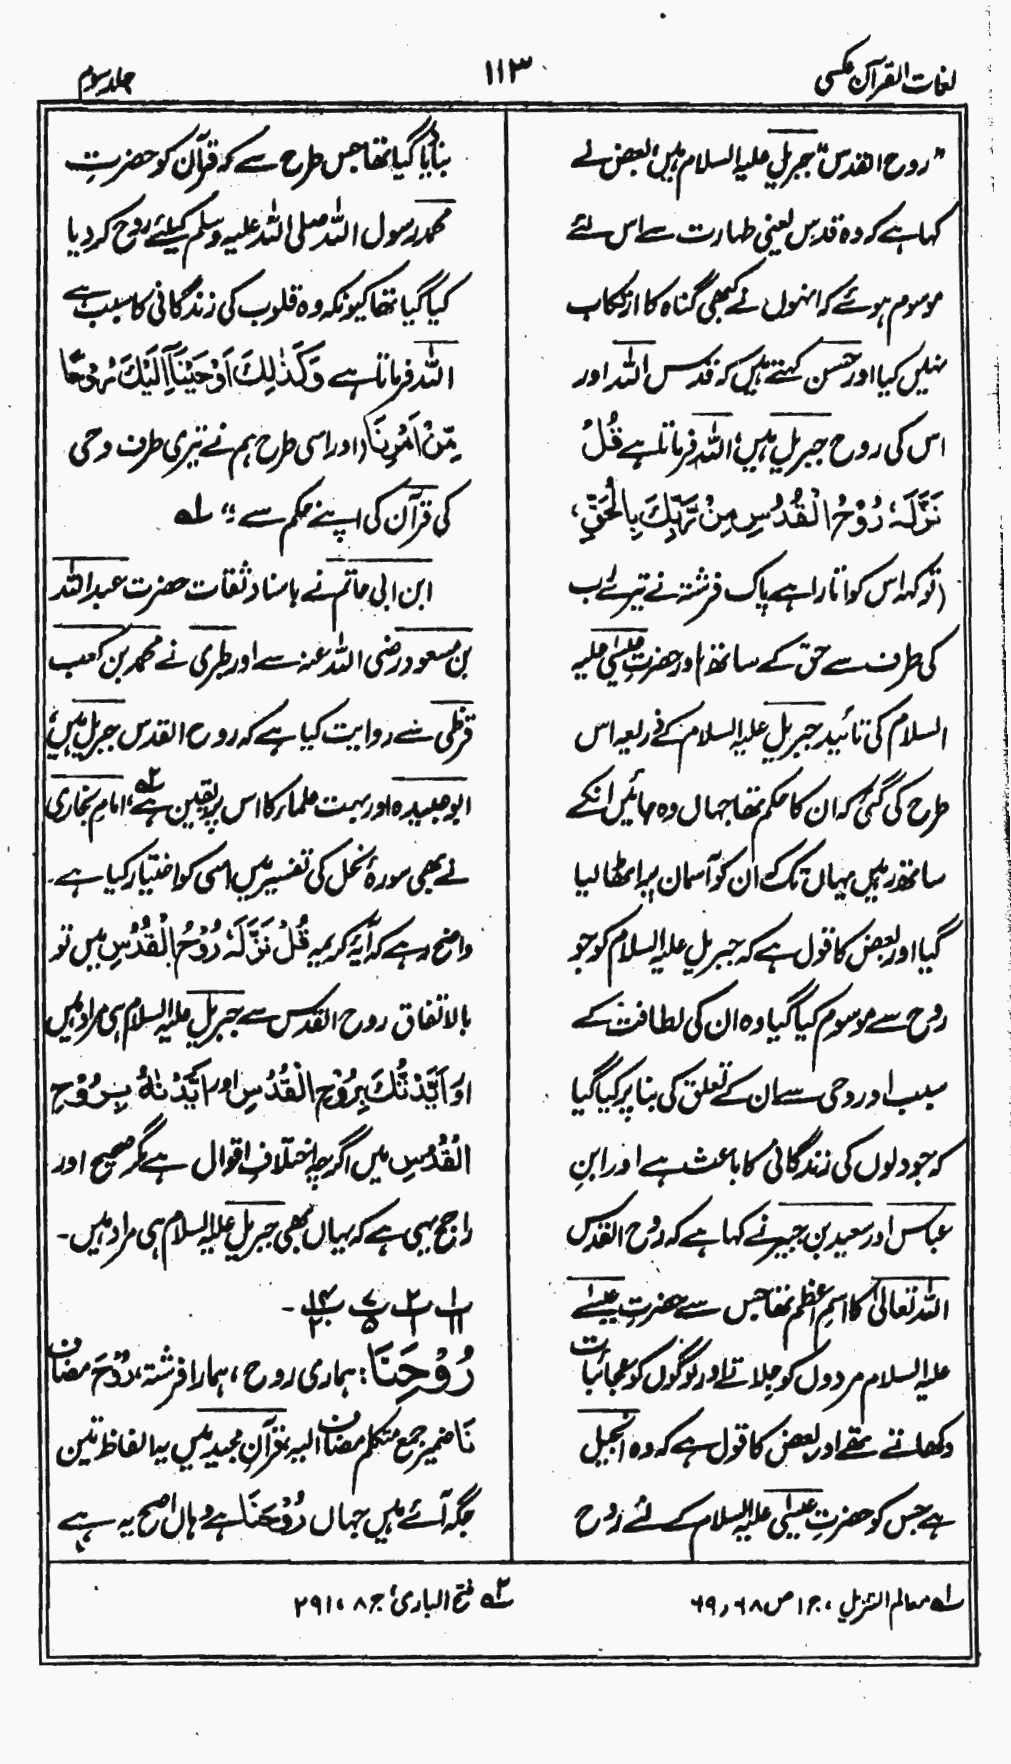 لغات القرآن عکسی
۱۱۳
جلد سوم
"روح القدس" جبریل علیہ السلام ہیں، بعض نے
کہا ہے کہ وہ قدس یعنی طہارت سے اس لئے
موسوم ہوئے کہ انہوں نے کبھی گناہ کا ارتکاب
نہیں کیا اور حسن کہتے ہیں کہ قدس اللہ اور
اس کی روح جبریل ہیں، اللہ فرماتا ہے قُلْ
نَزَّلَهٗ رُوْحُ الْقُدُسِ مِنْ رَّبِّكَ بِالْحَقِّ،
(تو کہہ اس کو اتارا ہے پاک فرشتہ نے تیرے رب
کی طرف سے حق کے ساتھ) اور حضرتِ عیسیٰ علیہ
السلام کی تائید جبریل علیہ السلام کے ذریعہ اس
طرح کی گئی کہ ان کا حکم تھا جہاں وہ جائیں انکے
ساتھ رہیں یہاں تک کہ ان کو آسمان پر اٹھا لیا
گیا اور بعض کا قول ہے کہ جبریل علیہ السلام کو جو
روح سے موسوم کیا گیا وہ ان کی لطافت کے
سبب اور وحی سے ان کے تعلق کی بنا پر کیا گیا
کہ جو دلوں کی زندگانی کا باعث ہے اور ابنِ
عباس اور سعید بن جبیر نے کہا ہے کہ روح القدس
اللہ تعالیٰ کا اسمِ اعظم تھا جس سے حضرتِ عیسےٰ
علیہ السلام مردوں کو جلاتے اور لوگوں کو عجائبات
دکھاتے تھے اور بعض کا قول ہے کہ وہ انجیل
ہے جس کو حضرتِ عیسیٰ علیہ السلام کے لئے روح
بنایا گیا تھا جس طرح سے کہ قرآن کو حضرتِ
محمد رسول اللہ صلی اللہ علیہ وسلم کیلئے روح کر دیا
کیا گیا تھا کیونکہ وہ قلوب کی زندگانی کا سبب ہے
اللہ فرماتا ہے وَكَذٰلِكَ اَوْحَيْنَآ اِلَيْكَ رُوْحًا
مِّنْ اَمْرِنَا (اور اسی طرح ہم نے تیری طرف وحی
کی قرآن کی اپنے حکم سے)؛ لہ
ابن ابی حاتم نے باسناد ثقات حضرت عبداللہ
بن مسعود رضی اللہ عنہ سے اور طبری نے محمد بن کعب
قرظی سے روایت کیا ہے کہ روح القدس جبریل ہیں،
ابو عبیدہ اور بہت علماء کا اس پر یقین ہے ۲ہ، امام بخاری
نے بھی سورۂ نحل کی تفسیر میں اسی کو اختیار کیا ہے۔
واضح رہے کہ آیہ کریمہ قُلْ نَزَّلَهٗ رُوْحُ الْقُدُسِ میں تو
بالاتفاق روح القدس سے جبریل علیہ السلام ہی مراد ہیں
اور اَيَّدْتُّكَ بِرُوْحِ الْقُدُسِ اور اَيَّدْنٰهُ بِرُوْحِ
الْقُدُسِ میں اگرچہ اختلافِ اقوال ہے مگر صحیح اور
راجح یہی ہے کہ یہاں بھی جبریل علیہ السلام ہی مراد ہیں۔
پ۱ ۱۱ پ۳ ۱ پ۷ ۵ پ۱۴ ۲۰ ۔
رُوْحَنَا: ہماری روح، ہمارا فرشتہ، رُوْحَ مضاف
نَا ضمیر جمع متکلم مضاف الیہ، قرآنِ مجید میں یہ الفاظ تین
جگہ آئے ہیں جہاں رُوْحَنَا ہے وہاں اصح یہ ہے
لہ معالم التنزیل، ج ۱ ص ۶۸، ۶۹
۲ہ فتح الباری، ج ۸، ۲۹۱